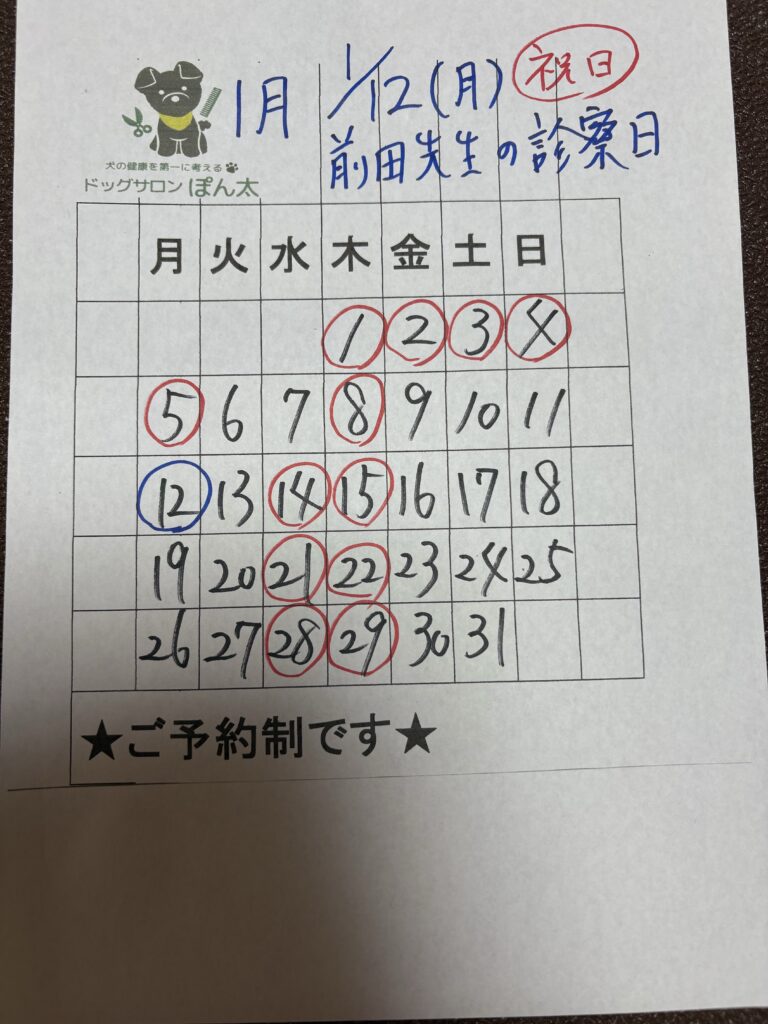 1月
1/12(月) 祝日
前田先生の診察日
犬の健康を第一に考える
ドッグサロン ぽん太
月 火 水 木 金 土 日
1 2 3 4
5 6 7 8 9 10 11
12 13 14 15 16 17 18
19 20 21 22 23 24 25
26 27 28 29 30 31
★ご予約制です★